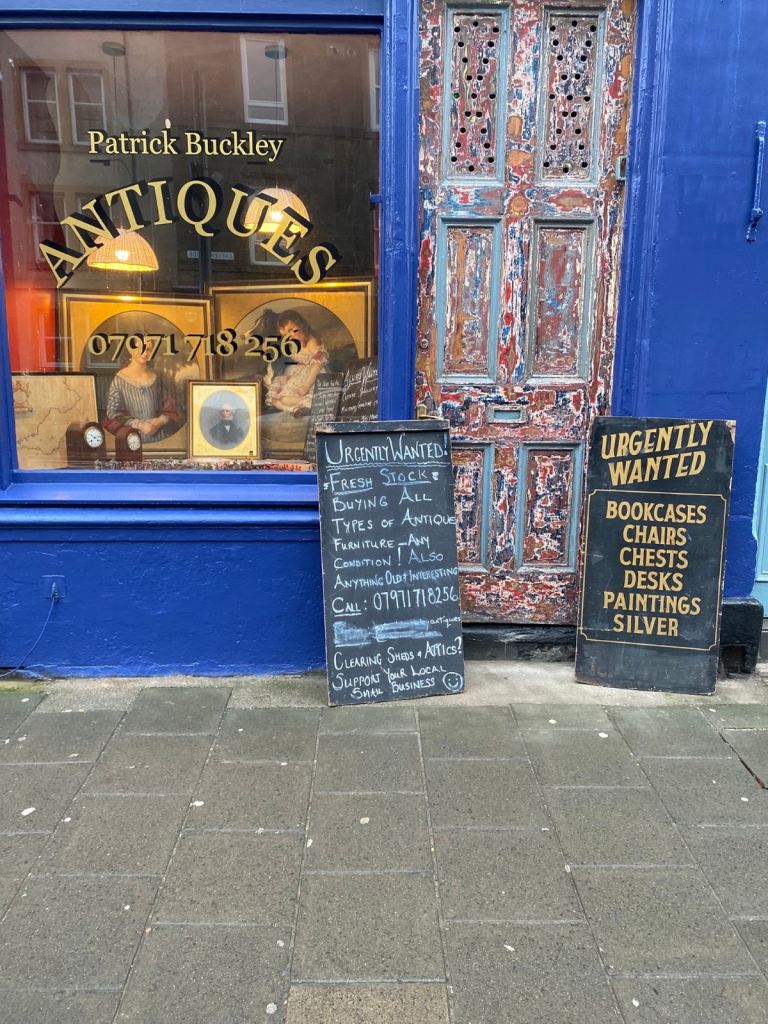 Patrick Buckley
ANTIQUES
07971 718 256
URGENTLY WANTED!
FRESH STOCK
BUYING ALL
TYPES OF ANTIQUE
FURNITURE - ANY
CONDITION! ALSO
ANYTHING OLD + INTERESTING
CALL: 07971718256
antiques
CLEARING SHEDS + ATTICS?
SUPPORT YOUR LOCAL
SMALL BUSINESS
URGENTLY
WANTED
BOOKCASES
CHAIRS
CHESTS
DESKS
PAINTINGS
SILVER